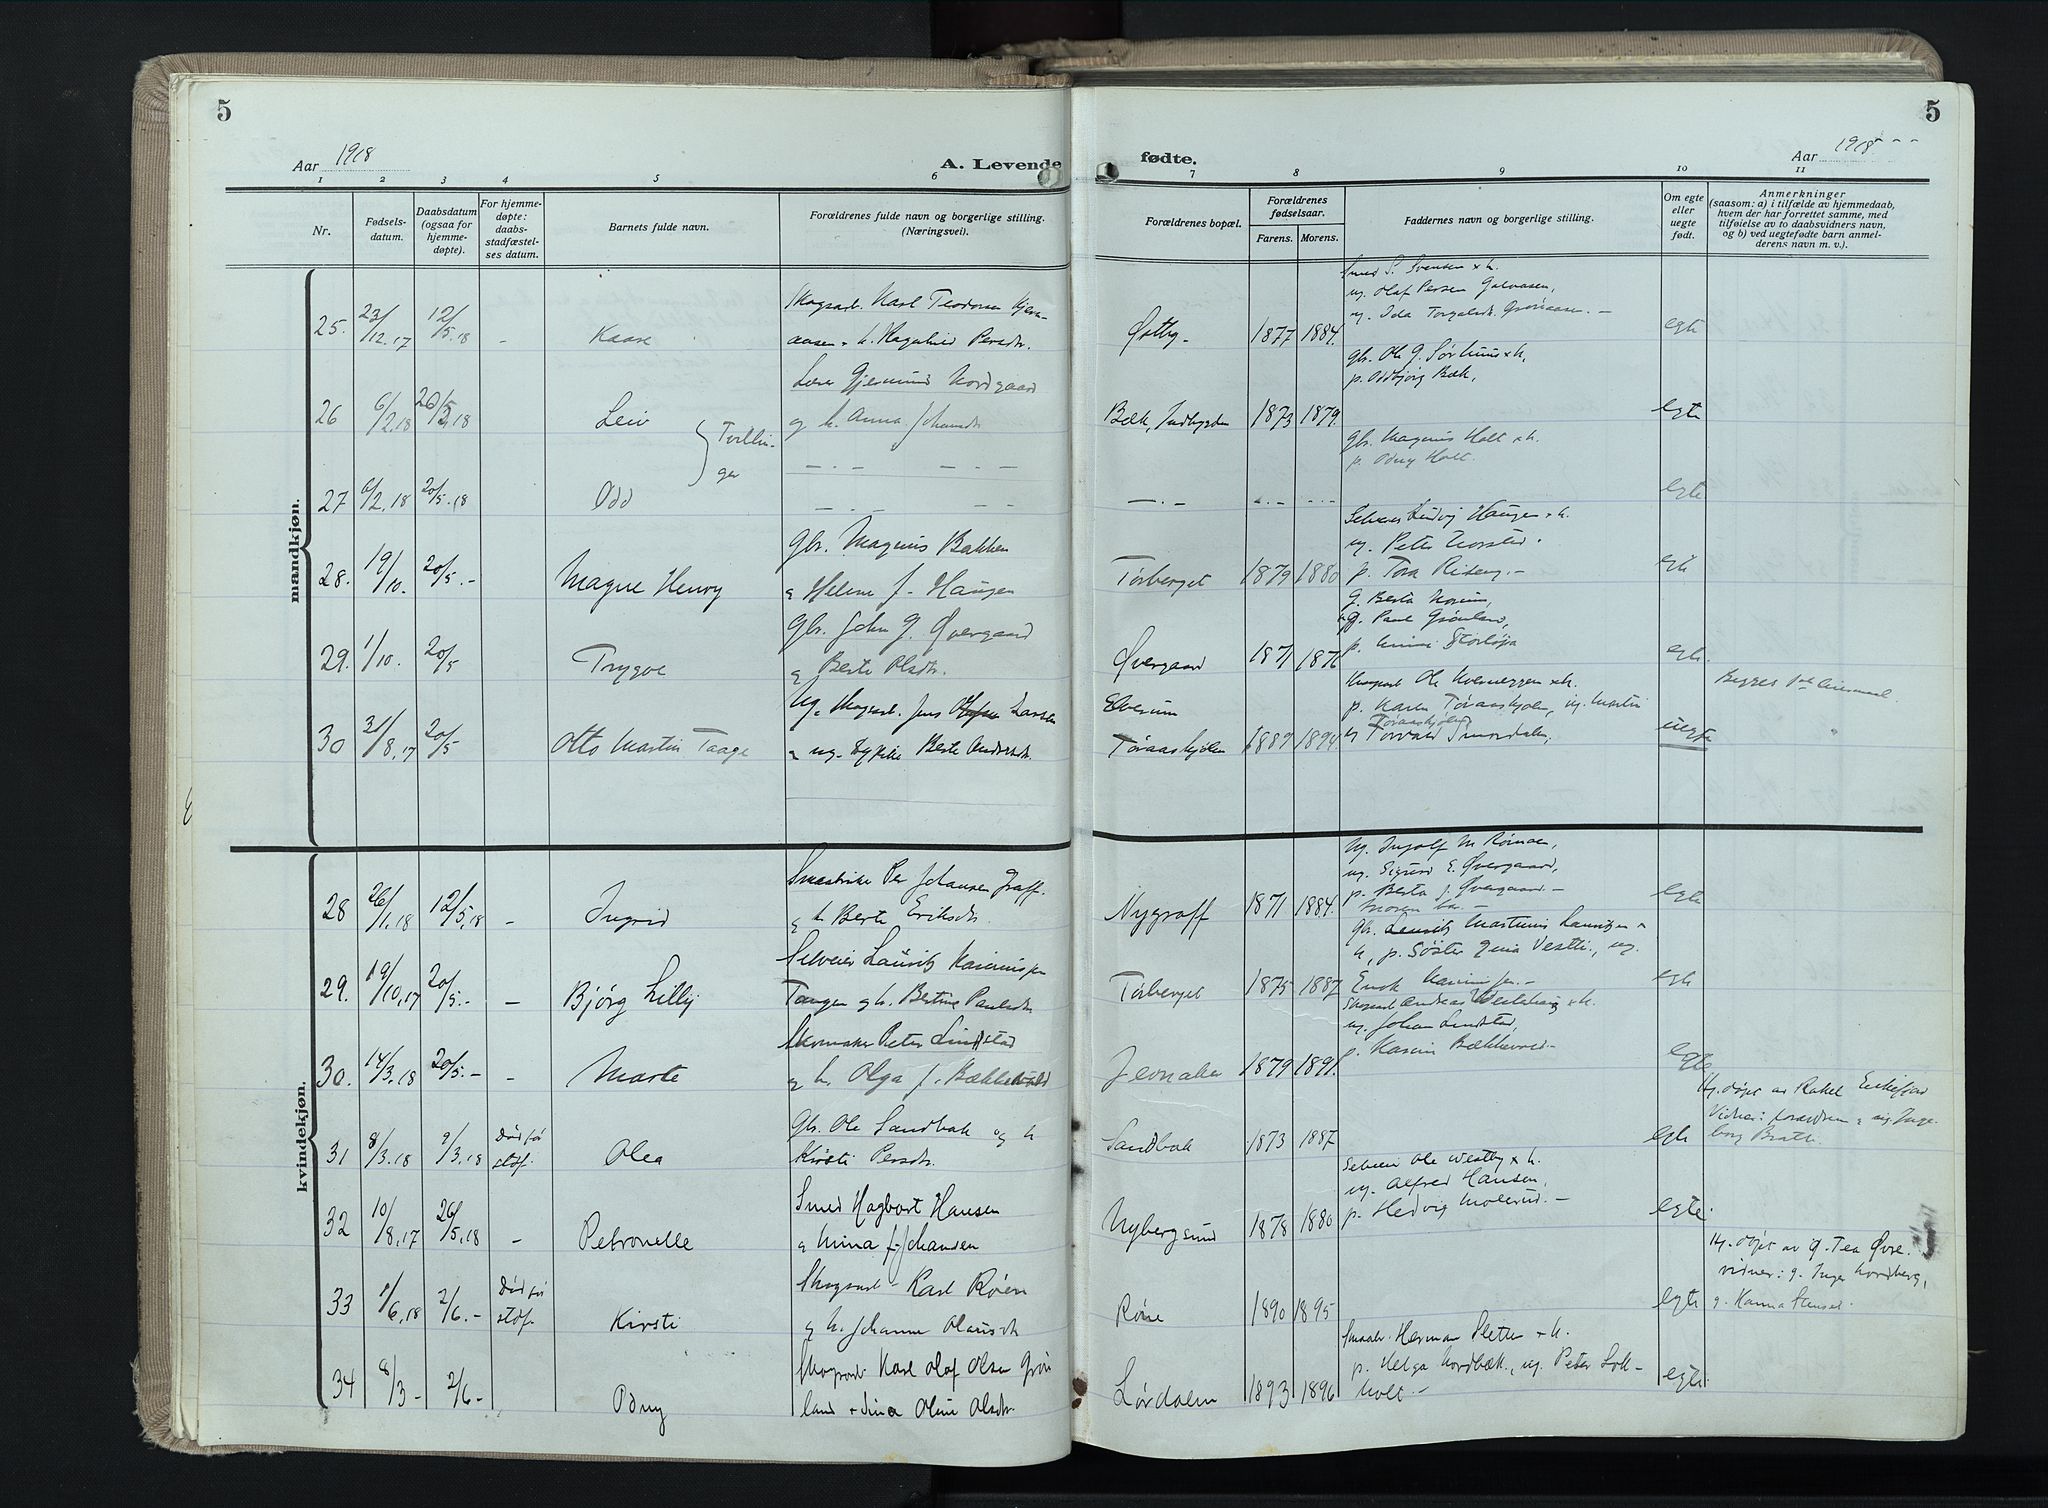 5
5
Aar 1918
A. Levende
fødte.
Aar 1918
1 2 3 4 5 6 7 8 9 10 11
Nr.
Fødsels-
datum.
Daabsdatum
(ogsaa for
hjemme-
døpte).
For hjemme-
døpte:
daabs-
stadfæstel-
ses datum.
Barnets fulde navn.
Forældrenes fulde navn og borgerlige stilling.
(Næringsvei).
Forældrenes bopæl.
Forældrenes
fødselsaar.
Farens. Morens.
Faddernes navn og borgerlige stilling.
Om egte
eller
uegte
født.
Anmerkninger
(saasom: a) i tilfælde av hjemmedaab,
hvem der har forrettet samme, med
tilføielse av to daabsvidners navn,
og b) ved uegtefødte barn anmel-
derens navn m. v.).
mandkjøn.
25. 23/12.17 12/5.18 - Kaare
Skogsarb. Karl Teodorsen
h. Magnhild Persdr.
Østby. 1877 1884.
Smed S. Svensen & h.
ug. Olaf Persen Galaasen,
ug. Ida Torgalsdr. Grønaasen. -
egte
26 6/2.18 20/5.18 Leiv
Tvillin-
ger
Lærer Gjermund Nordgaard
og h. Anna Johansdr.
Bæk, Indbygden 1873 1879.
gbr. Ole G. Sørhuus & h.
p. Oddbjørg Bæk,
egte
27 6/2.18 20/5.18 Odd
- . - - . -
gbr. Magnus Holt & h.
p. Odny Holt.
egte
28. 19/10. 20/5. - Magne Henry
Gbr. Magnus Bakken
& Helene f. Haugen
Tørberget 1879 1880
Selveier Ludvig Haugen & h.
ug. Peter Norstad.
p. Tora Riseng. -
egte
29. 1/10. 20/5 Trygve
Gbr. John G. Øvergaard
& Berte Olsdr.
Øvergaard 1871 1876
G. Berta Moren,
g. Paul Grønland,
p. Anna Storløpa
egte.
30 31/8.17 20/5 Otto Martin Taage
Ug. Skogsarb. Jens Larsen
& ug. Berte Andersdr.
Elverum
Tøraaskjølen 1889 1894
Skogsarb. Ole & h.
p. Karen Tøraaskjølen, ug. Martin
Tøraaskjølen
& Torvald Smordalen,
uegte
Begges 1ste
kvindekjøn.
28 26/1.18 12/5.18 - Ingrid
Smaabruker Per Johansen Graff.
& h. Berte Eriksdr.
Nygraff 1871 1884.
Ug. Ingolf M. Rømoen,
ug. Sigurd E. Øvergaard,
p. Berta J. Øvergaard. -
Moren bar. -
egte
29. 19/10.17 20/5. - - Bjørg Lilly
Selveier Laurits Kasinusen
Tangen og h. Bertine Paulsdr.
Tørberget 1875 1887
Gbr. Martinus Lauritsen &
h, p. Søster Jenia Vestli, ug.
Enok -
egte
30. 14/3.18 20/5. - - Marte
Skomaker Peter Lindstad
& h. Olga f. Bækkevold
Jevnaker 1879 1891.
Skogsarb. Andreas Vesterhaug & h.
ug. Johan Lindstad,
p. Karen Bækkevold -
egte
31 8/3.18 9/3.18 Død før
stdf. Olea
Gbr. Ole Sandbak og h
Kirsti Persdr.
Sandbak 1873 1887
egte
Hj. døpt av Rakel
Vidner: forældrene & sig. Inge-
borg Bratli.
32 10/8.17 26/5.18 - Petronelle
Smed Hagbart Hansen
& Mina f. Johansen
Nybergsund 1878 1880
Selveier Ole Westby & h.
ug. Alfred Hansen,
p. Hedvig Moterud. -
egte.
33 1/6.18 2/6. - Død før
stdf. Kirsti
Skogsarb. Karl Røen
& h. Johanne Olausdr.
Røise 1890 1895
egte
Hj. døpt av g. Tea Øvre.
vidner: g. Inger Nordberg,
g. Hanna Stensei.
34 8/3 - 2/6 - Odny
Skogsarb. Karl Olaf Olsen Grøn
land & Dina Oline Olsdr.
Lørdalen 1893 1896
Smaabr. Herman Sletten & h.
p. Helga Nordbæk, ug. Peter Lok-
holt -
egte.